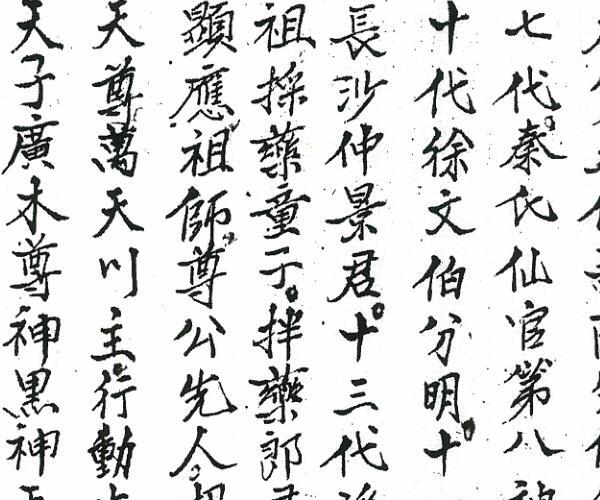 七代。秦氏仙官第八
十代徐文伯分明。十
長沙仲景君。十三代
祖採藥童子。拌藥郎
顯應祖師。尊公先人。
天尊萬天川主行動
天子廣木尊神黑神